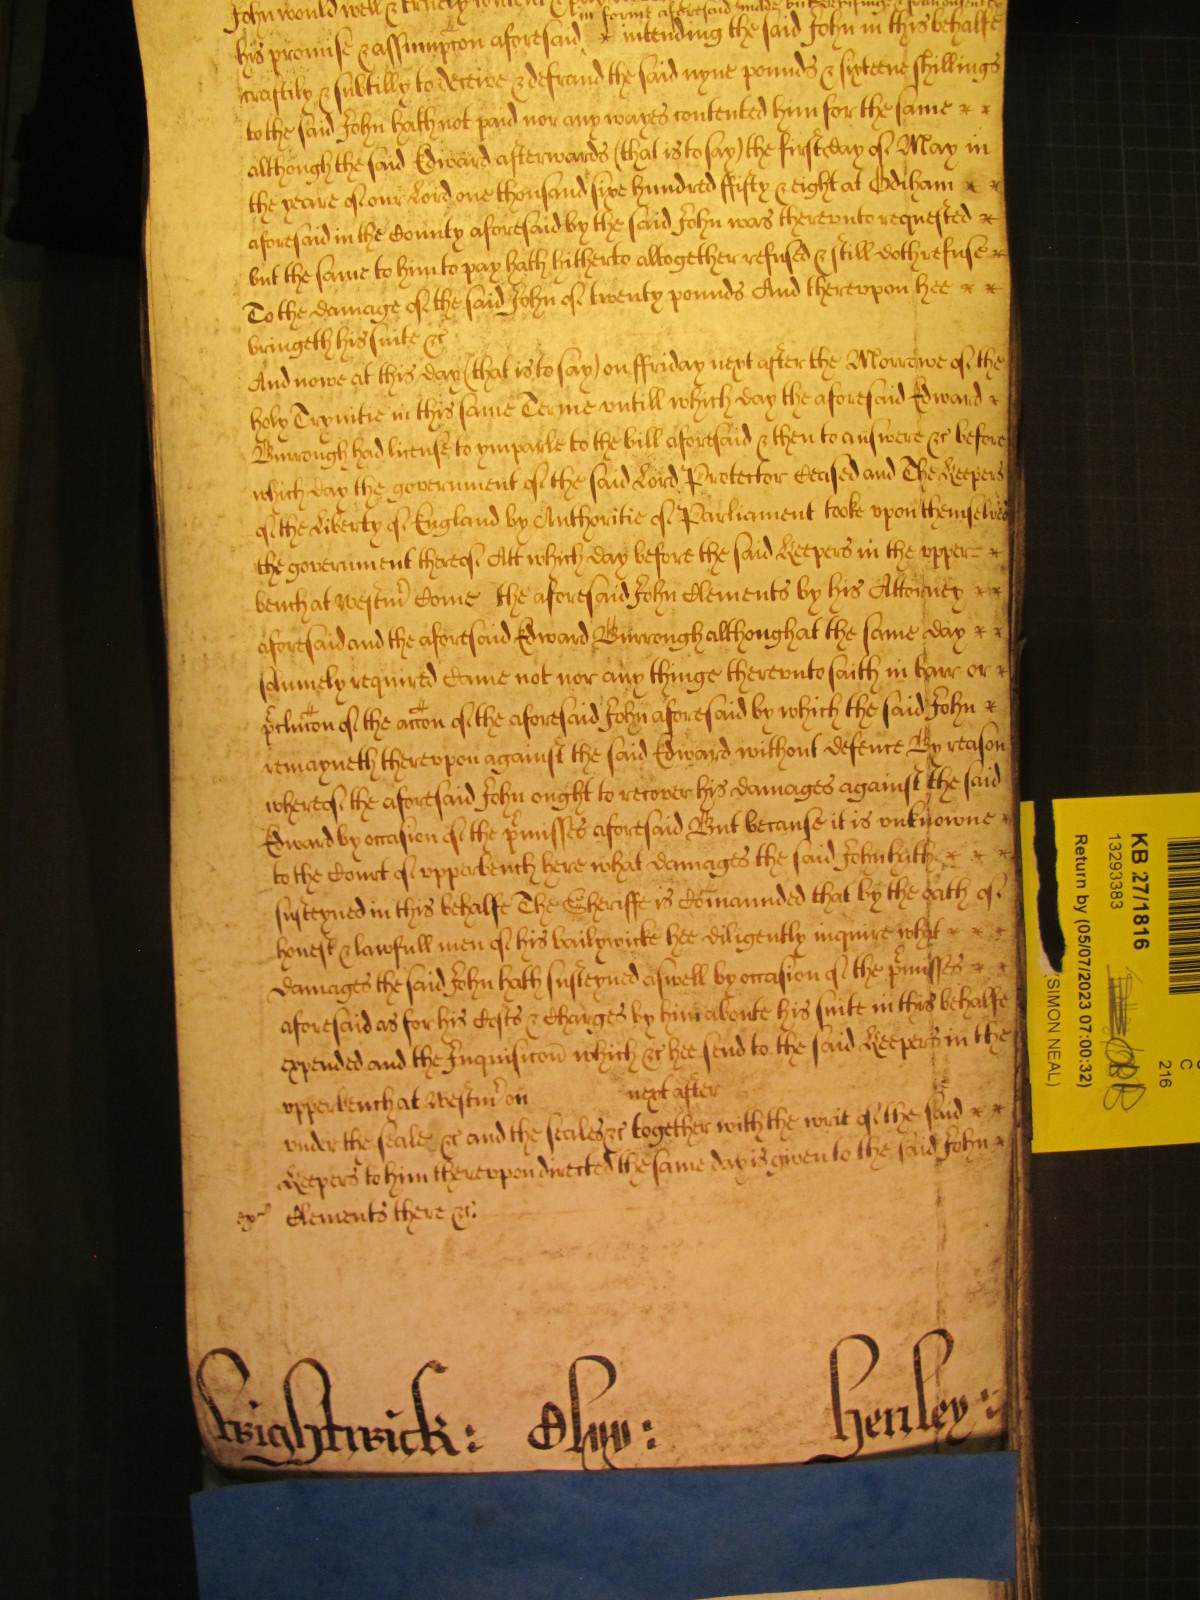 John would well & truely content & pay
in forme aforesaid made but devising & fraudulently
his promise & assumpton aforesaid intending the said John in this behalfe
craftily & subtilly to deceive & defraud the said nyne pounds & sixteene shillings
to the said John hath not paid nor any wayes contented him for the same
although the said Edward afterwards (that is to say) the first day of May in
the yeare of our Lord one thousand sixe hundred ffifty & eight at Odiham
aforesaid in the County aforesaid by the said John was therevnto requested
but the same to him to pay hath hitherto altogether refused & still doth refuse
To the damage of the said John of twenty pounds And therevpon hee
bringeth his suite &c
And nowe at this day (that is to say) on ffriday next after the Morrowe of the
holy Trynitie in this same Terme vntill which day the aforesaid Edward
Burrough had license to ymparle to the bill aforesaid & then to answere &c before
which day the government of the said Lord Protector ceased and The Keepers
of the Liberty of England by Authoritie of Parliament tooke vpon themselves
the government thereof Att which day before the said Keepers in the vpper
bench at Westm̃ Come the aforesaid John Clements by his Attorney
aforesaid and the aforesaid Edward Burrough although at the same day
solumely required Came not nor any thinge therevnto saith in barr or
p̃clucon of the accon of the aforesaid John aforesaid by which the said John
remayneth therevpon against the said Edward without defence By reason
whereof the aforesaid John ought to recover his damages against the said
Edward by occasion of the p̃misses aforesaid But because it is vnknowne
to the Court of vpperbench here what damages the said John hath
susteyned in this behalfe The Sheriffe is Com̃aunded that by the oath of
honest & lawfull men of his bailywicke hee diligently inquire what
damages the said John hath susteyned aswell by occasion of the p̃misses
aforesaid as for his Costs & Charges by him aboute his suite in this behalfe
expended and the Inquisicon̄ which &c hee send to the said Keepers in the
vpperbench at Westm̃ on next after
vnder the seale &c and the seales &c together with the writ of the said
Keepers to him therevpon directed the same day is given to the said John
exr Clements there &c.
Wrightwick: Olyv: Henley:
KB 27/1816
13293383
Return by (05/07/2023 07:00:32)
SIMON NEAL)
216
C